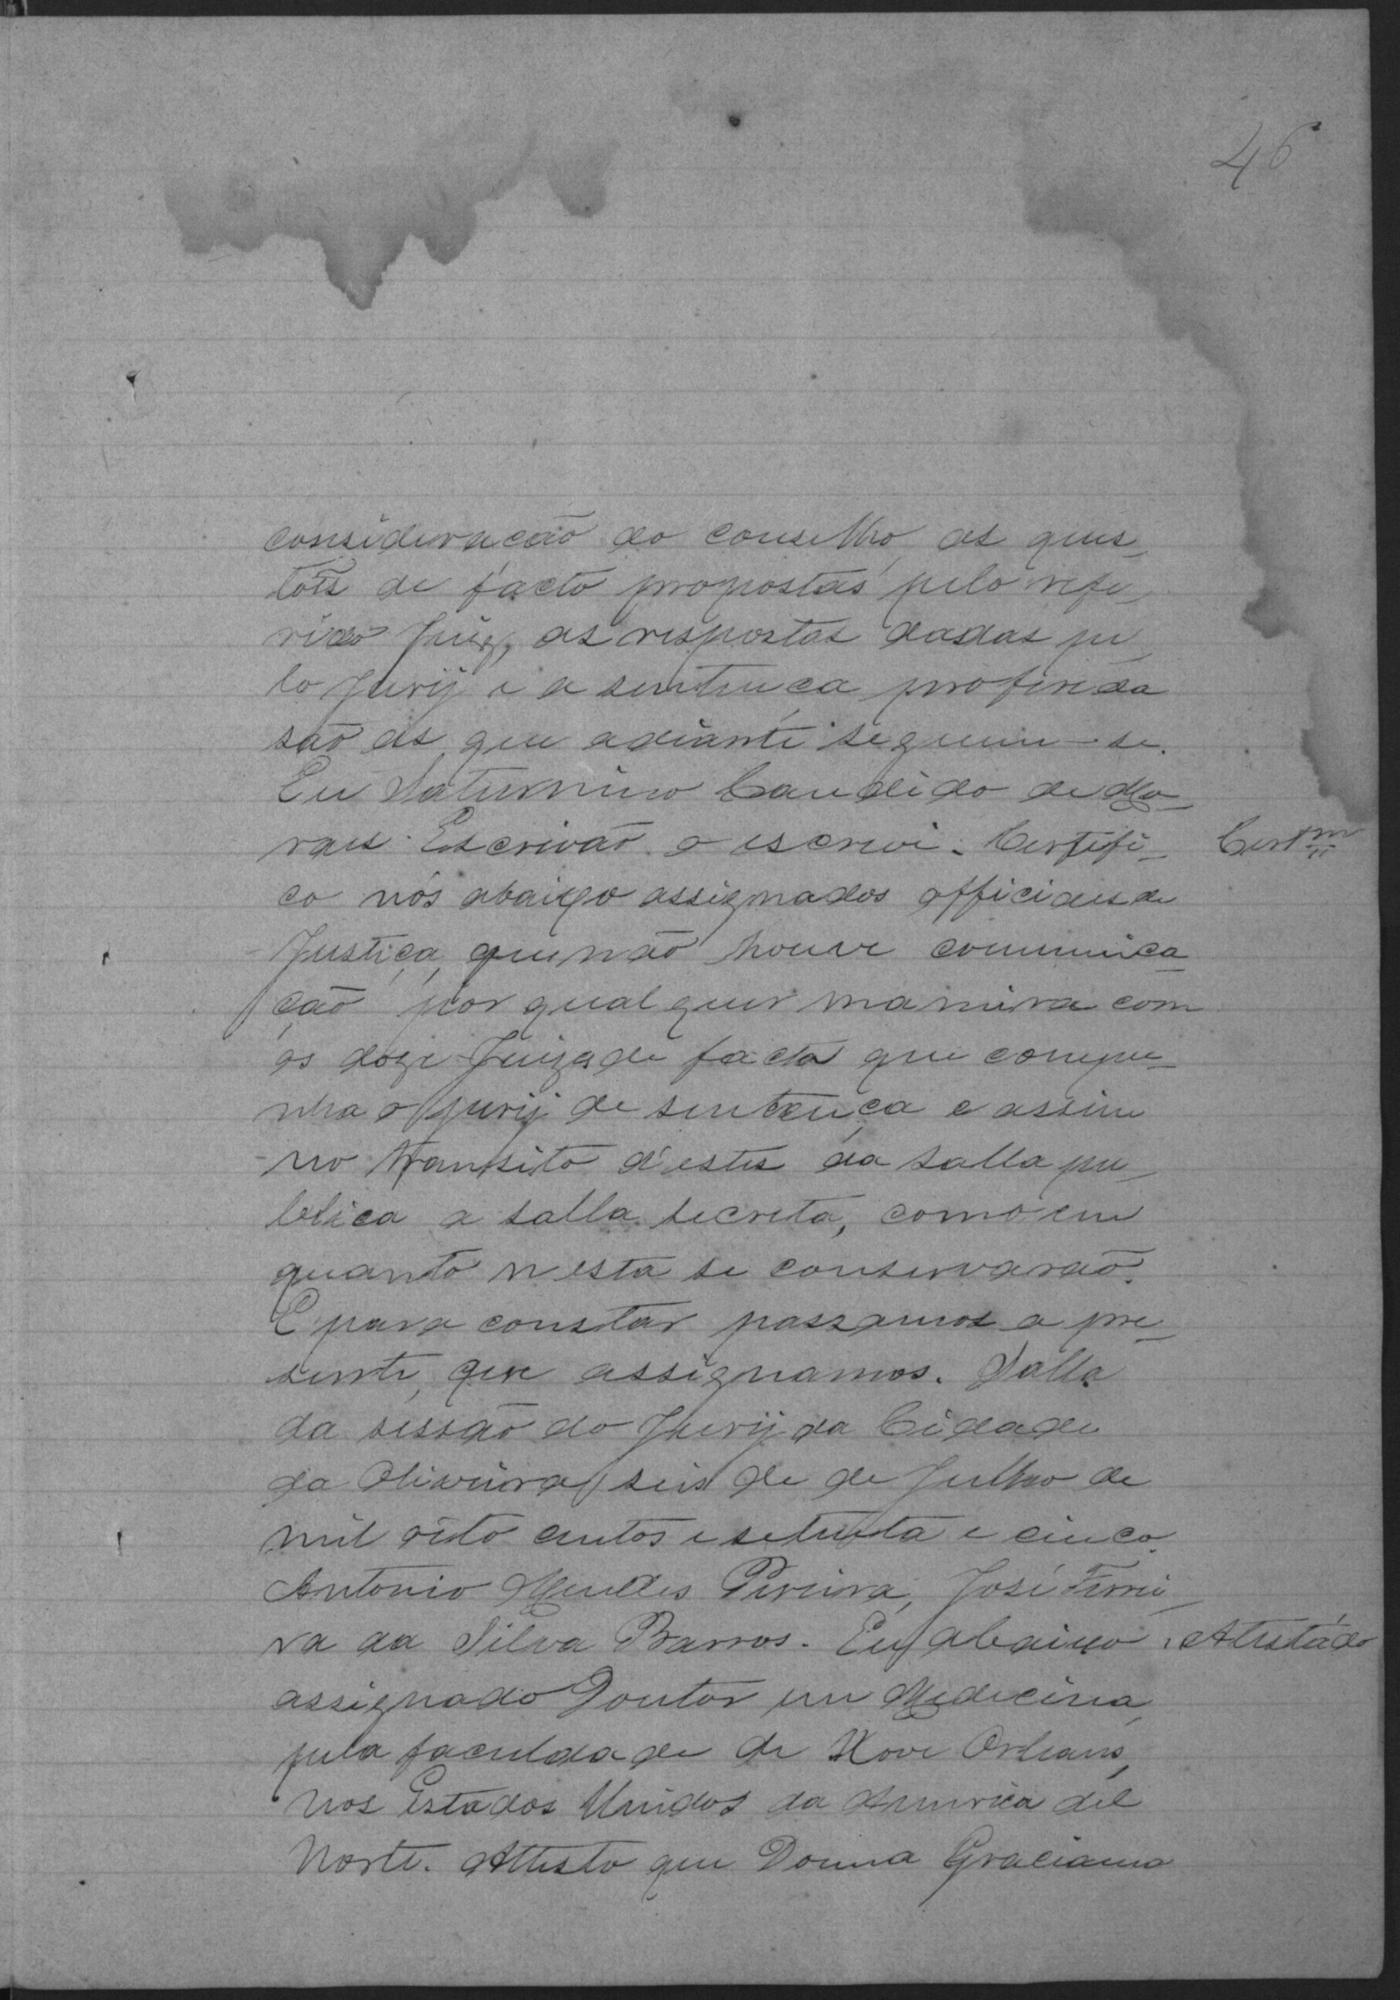 46
consideração do conselho, as ques_
tões de facto propostas pelo refe_
rido Juiz, as respostas dadas pe_
lo Jury e a sentença proferida
são as que adiante seguem-se.
Eu Saturnino Candido de Mo_
raes Escrivão o escrevi. Certifi_
Cert.m
co nós abaixo assignados officiaes de
Justiça, que não houve communica_
ção por qualquer maneira com
os doze Juizes de facto que compu_
nha o Jury de sentença e assim
no tranzito d'estes da salla pu_
blica a salla secreta, como em
quanto n'esta se conservarão.
E para constar passamos a pre_
sente, que assignamos. Salla
da sessão do Jury da Cidade
da Oliveira, seis de de Julho de
mil oito centos e setenta e cinco.
Antonio Pereira, José Ferrei_
ra da Silva Barros. Eu abaixo
Attestado
assignado Doutor em Medicina,
pela faculdade de Nove Orleans,
nos Estados Unidos da America del
Norte. Attesto que Donna Graciana